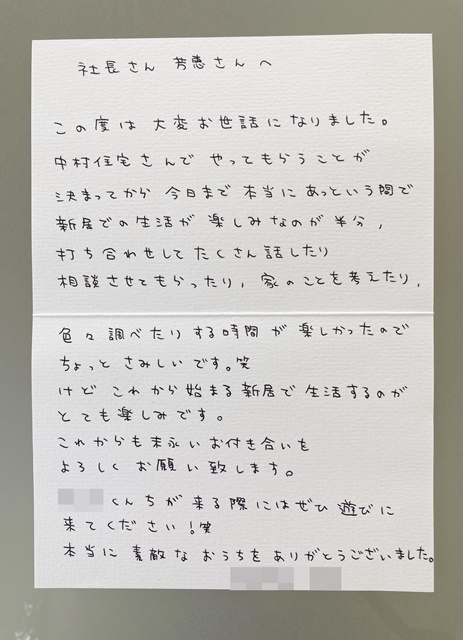 社長さん 芳恵さんへ
この度は大変お世話になりました。
中村住宅さんでやってもらうことが
決まってから今日まで本当にあっという間で
新居での生活が楽しみなのが半分,
打ち合わせしてたくさん話したり
相談させてもらったり,家のことを考えたり,
色々調べたりする時間が楽しかったので
ちょっとさみしいです。笑
けどこれから始まる新居で生活するのが
とても楽しみです。
これからも末永いお付き合いを
よろしくお願い致します。
くんちが来る際にはぜひ遊びに
来てください!笑
本当に素敵なおうちをありがとうございました。